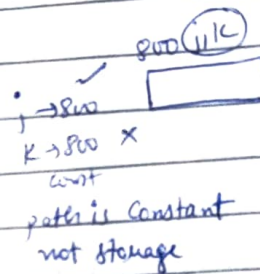 800 j, K
j → 800 ✓
K → 800 ×
const
path is constant
not storage